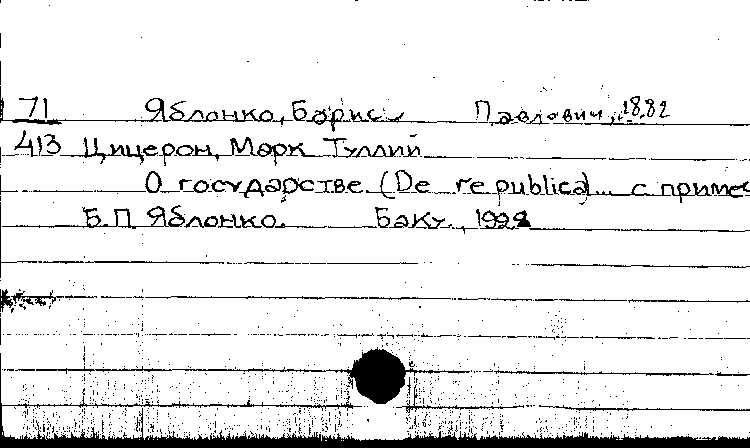 71 Яблонко, Борис Павлович, 1882
413 Цицерон, Марк Туллий
О государстве. (De re publica)... с приме
Б.П. Яблонко. Баку.,